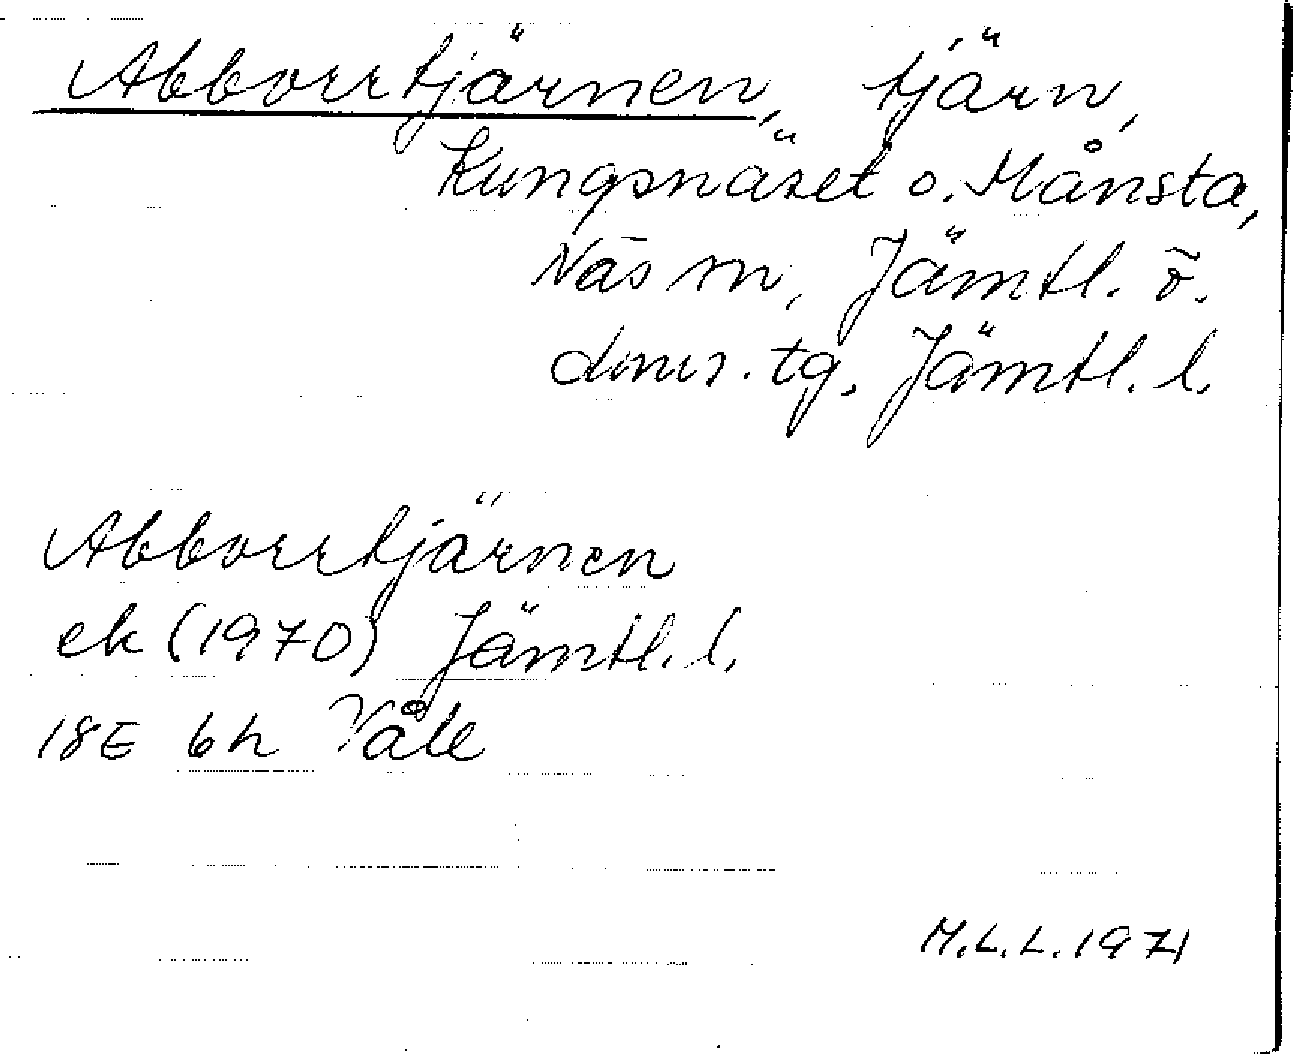 Abborrtjärnen, tjärn,
Kungsnäset o. Månsta,
Näs sn, Jämtl. ö.
doms. tg, Jämtl. l.
Abborrtjärnen
ek (1970) Jämtl. l.
18E 6h Våle
M.L.L. 1971